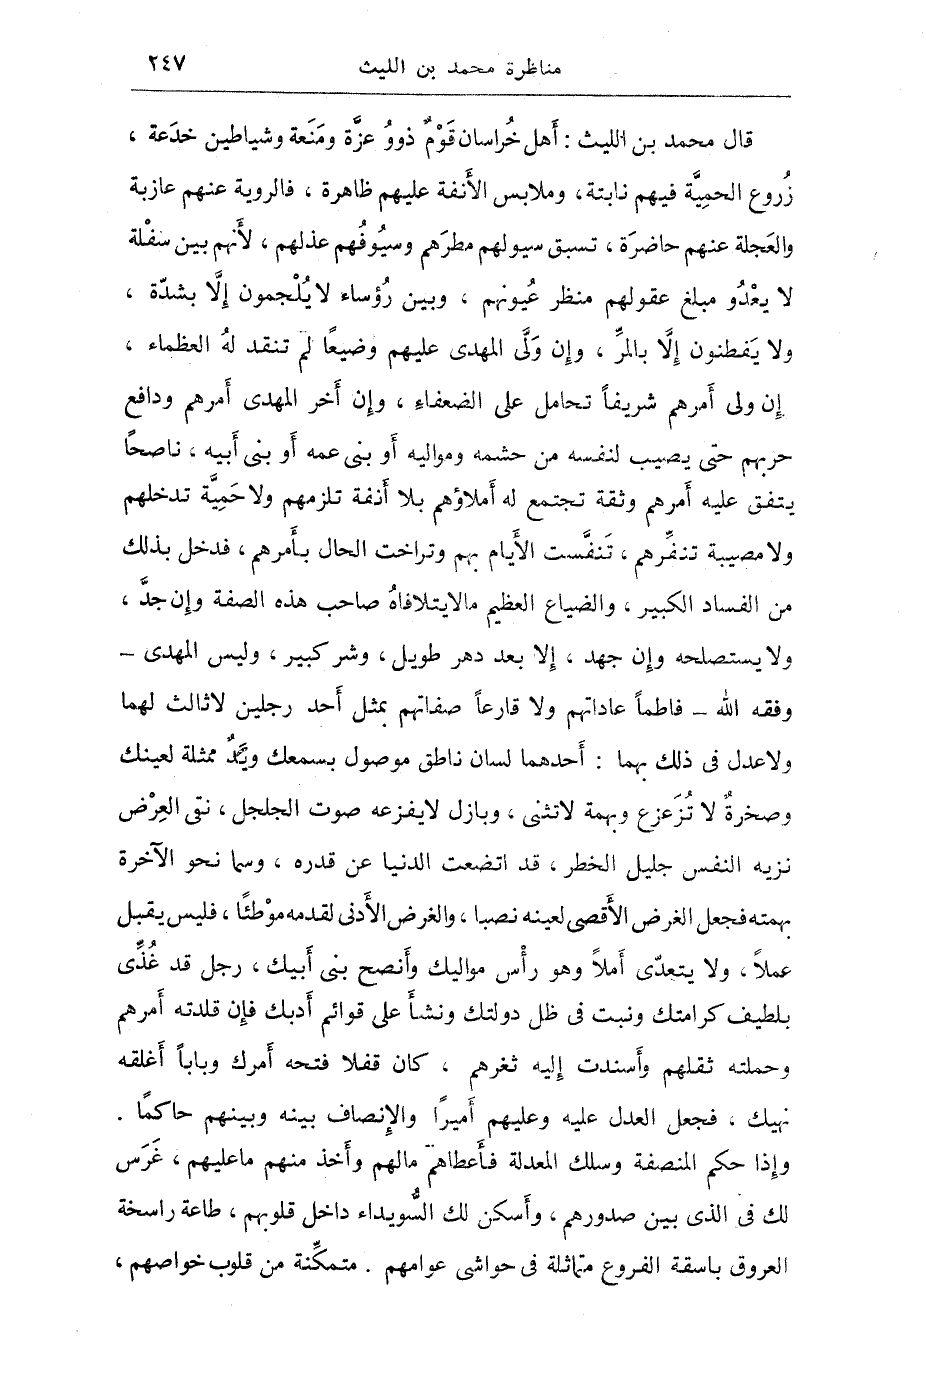 مناظرة محمد بن الليث ٢٤٧
قال محمد بن الليث : أَهل خُراسان قَوْمٌ ذووُ عزَّة ومَنَعة وشياطين خدَعة ،
زُروع الحمِيَّة فيهم نابتة ، وملابس الأَنفة عليهم ظاهرة ، فالروية عنهم عازبة
والعَجلة عنهم حاضرَة ، تسبق سيولهم مطرَهم وسيُوفُهم عذلهم ، لأَنهم بين سفْلة
لا يعْدُو مبلغ عقولهم منظر عُيونهم ، وبين رُؤساء لا يُلْجمون إِلَّا بشدّة ،
ولا يَفطنون إِلَّا بالمرِّ ، وإن وَلَّى المهدى عليهم وضيعًا لم تنقد لهُ العظماء ،
إِن ولى أَمرهم شريفاً تحامل على الضعفاءِ ، وإن أَخر المهدى أَمرهم ودافع
حربهم حتى يصيب لنفسه من حشمه ومواليه أَو بنى عمه أَو بنى أَبيه ، ناصحًا
يتفق عليه أَمرهم وثقة تجتمع له أَملاؤهم بلا أَنفة تلزمهم ولا حَمِيَّة تدخلهم
ولا مصيبة تنفِّرهم ، تَنفَّست الأَيام بهم وتراخت الحال بأَمرهم ، فدخل بذلك
من الفساد الكبير ، والضياع العظيم مالايتلافاهُ صاحب هذه الصفة وإن جدَّ ،
ولا يستصلحه وإن جهد ، إلا بعد دهر طويل ، وشر كبير ، وليس المهدى –
وفقه الله – فاطماً عاداتهم ولا قارعاً صفاتهم بمثل أَحد رجلين لاثالث لهما
ولاعدل فى ذلك بهما : أَحدهما لسان ناطق موصول بسمعك ويَدٌ ممثلة لعينك
وصخرةٌ لا تُزَعزع وبهمة لاتثنى ، وبازل لايفزعه صوت الجلجل ، نقى العِرْض
نزيه النفس جليل الخطر ، قد اتضعت الدنيا عن قدره ، وسما نحو الآخرة
بهمته فجعل الغرض الأَقصى لعينه نصبا ، والغرض الأَدنى لقدمه موْطئًا ، فليس يقبل
عملاً ، ولا يتعدّى أَملاً وهو رأْس مواليك وأَنصح بنى أَبيك ، رجل قد غُذِّى
بلطيف كرامتك ونبت فى ظل دولتك ونشأَ على قوائم أَدبك فإن قلدته أَمرهم
وحملته ثقلهم وأَسندت إليه ثغرهم ، كان قفلا فتحه أَمرك وباباً أَغلقه
نهيك ، فجعل العدل عليه وعليهم أَميرًا والإنصاف بينه وبينهم حاكمًا .
وإذا حكم المنصفة وسلك المعدلة فأَعطاهم مالهم وأَخذ منهم ماعليهم ، غَرَس
لك فى الذى بين صدورهم ، وأَسكن لك السُّويداء داخل قلوبهم ، طاعة راسخة
العروق باسقة الفروع متماثلة فى حواشى عوامهم . متمكِّنة من قلوب خواصهم ،